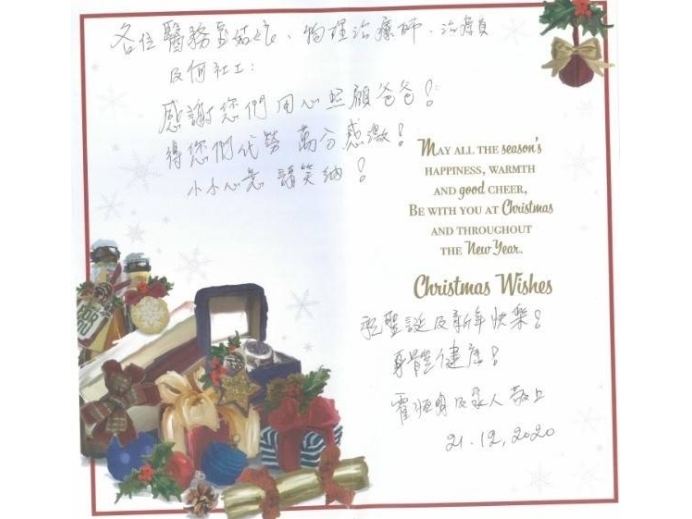 各位醫務姑娘、物理治療師、治療員
及何社工:
感謝您們用心照顧爸爸!
得您們代勞 萬分感激!
小小心意 請笑納!
MAY ALL THE season's
HAPPINESS, WARMTH
AND good CHEER,
BE WITH YOU AT Christmas
AND THROUGHOUT
THE New Year.
Christmas Wishes
祝聖誕及新年快樂!
身體健康!
霍 及家人 敬上
21.12.2020